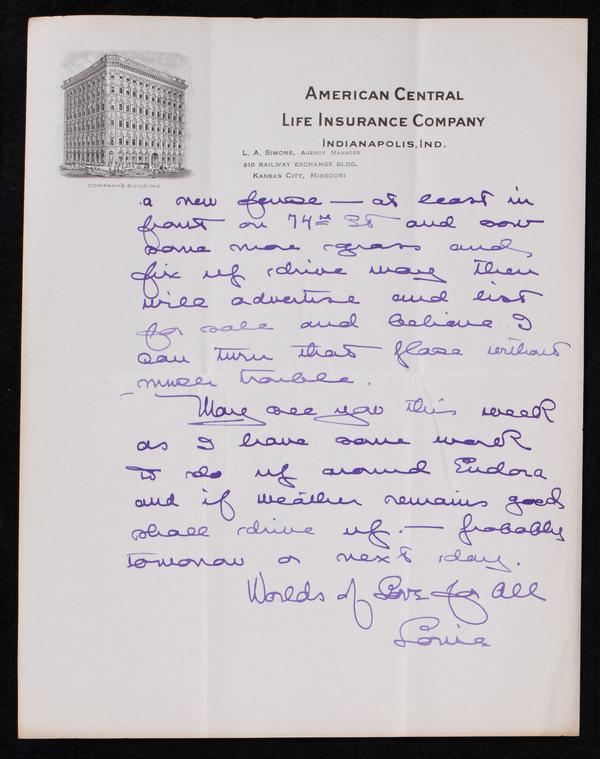 AMERICAN CENTRAL
LIFE INSURANCE COMPANY
INDIANAPOLIS, IND.
L. A. SIMONS, AGENCY MANAGER
810 RAILWAY EXCHANGE BLDG.
KANSAS CITY, MISSOURI
COMPANY'S BUILDING
a new fence — at least in
front on 74th St and sow
some more grass and
fix up drive way then
will advertise and list
for sale and believe I
can turn that place without
much trouble.
May see you this week
as I have some work
to do up around Eudora
and if weather remains good
shall drive up. — probably
tomorrow or next day.
Worlds of Love for all
Louie